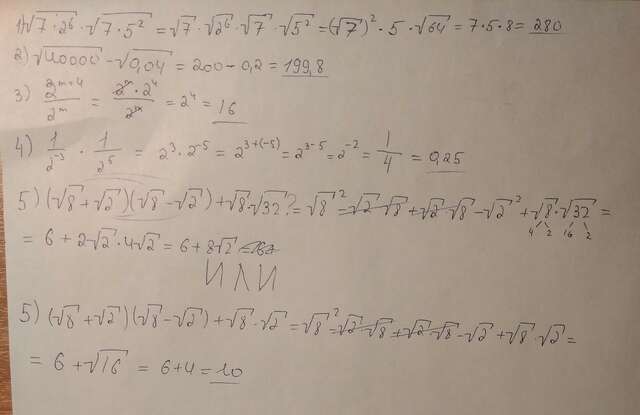 1) √7·2⁶ · √7·5² = √7 · √2⁶ · √7 · √5² = (√7)² · 5 · √64 = 7·5·8 = 280
2) √40000 - √0,04 = 200 - 0,2 = 199,8
3) 2ᵐ⁺⁴/2ᵐ = 2ᵐ·2⁴/2ᵐ = 2⁴ = 16
4) 1/2⁻³ · 1/2⁵ = 2³ · 2⁻⁵ = 2³⁺⁽⁻⁵⁾ = 2³⁻⁵ = 2⁻² = 1/4 = 0,25
5) (√8 + √2)(√8 - √2) + √8·√32? = √8² - √2·√8 + √2·√8 - √2² + √8·√32 =
4 2 16 2
= 6 + 2√2 · 4√2 = 6 + 8√2
ИЛИ
5) (√8 + √2)(√8 - √2) + √8·√2 = √8² - √2·√8 + √2·√8 - √2 + √8·√2 =
= 6 + √16 = 6+4 = 10